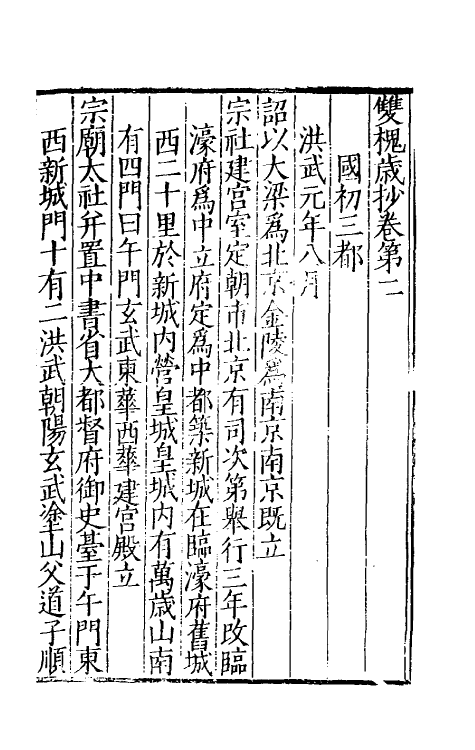 雙槐歲抄卷第二
國初三都
洪武元年八月
詔以大梁爲北京金陵爲南京南京既立
宗社建宫室定朝市北京有司次第舉行三年改臨
濠府爲中立府定爲中都築新城在臨濠府舊城
西二十里於新城内營皇城皇城内有萬歲山南
有四門曰午門玄武東華西華建宫殿立
宗廟太社并置中書省大都督府御史臺于午門東
西新城門十有二洪武朝陽玄武塗山父道子順